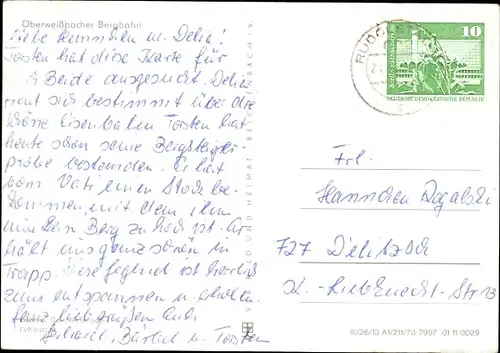 Oberweißbacher Bergbahn
Liebe Hannchen u. Delia!
Torsten hat diese Karte für
Beide ausgesucht. Delia
freut sich bestimmt über die
schöne Eisenbahn. Torsten hat
heute schon seine Bergsteiger-
probe bestanden. Er hat
vom Vati einen Stock be-
kommen mit dem ihm
kein Berg zu hoch ist. Er
hält uns ganz schön in
Trapp. Diese Gegend ist herrlich
zum entspannen u. erholen.
Ganz liebe Grüße an Euch
Bärbel u. Torsten
BILD UND HEIMAT REICHENBACH I. V.
RUDOLSTADT
10
DEUTSCHE DEMOKRATISCHE REPUBLIK
Frl.
Hannchen
727 Delitzsch
K.-Liebknecht-Str. 13
III/26/13 A1/211/73-7997 01 11 0029